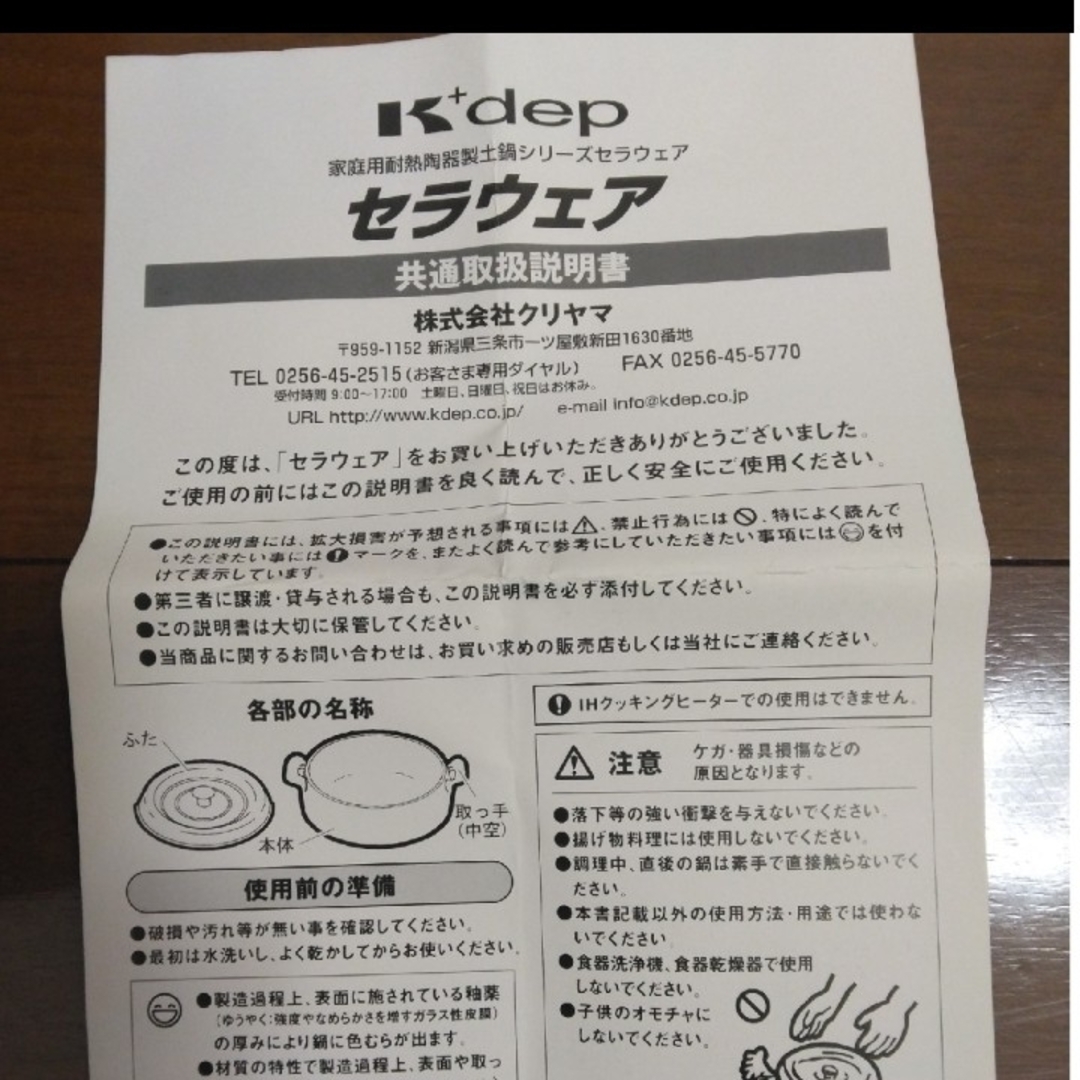 K+dep
家庭用耐熱陶器製土鍋シリーズセラウェア
セラウェア
共通取扱説明書
株式会社クリヤマ
〒959-1152 新潟県三条市一ツ屋敷新田1630番地
TEL 0256-45-2515(お客さま専用ダイヤル) FAX 0256-45-5770
受付時間 9:00〜17:00 土曜日、日曜日、祝日はお休み。
URL http://www.kdep.co.jp/ e-mail info@kdep.co.jp
この度は、「セラウェア」をお買い上げいただきありがとうございました。
ご使用の前にはこの説明書を良く読んで、正しく安全にご使用ください。
●この説明書には、拡大損害が予想される事項には⚠、禁止行為には🚫、特によく読んで
いただきたい事には❗マークを、またよく読んで参考にしていただきたい事項には😄を付
けて表示しています。
●第三者に譲渡・貸与される場合も、この説明書を必ず添付してください。
●この説明書は大切に保管してください。
●当商品に関するお問い合わせは、お買い求めの販売店もしくは当社にご連絡ください。
各部の名称
ふた
取っ手
(中空)
本体
使用前の準備
●破損や汚れ等が無い事を確認してください。
●最初は水洗いし、よく乾かしてからお使いください。
●製造過程上、表面に施されている釉薬
(ゆうやく:強度やなめらかさを増すガラス性皮膜)
の厚みにより鍋に色むらが出ます。
●材質の特性で製造過程上、表面や取っ
IHクッキングヒーターでの使用はできません。
注意 ケガ・器具損傷などの
原因となります。
●落下等の強い衝撃を与えないでください。
●揚げ物料理には使用しないでください。
●調理中、直後の鍋は素手で直接触らないでく
ださい。
●本書記載以外の使用方法・用途では使わな
いでください。
●食器洗浄機、食器乾燥器で使用
しないでください。
●子供のオモチャに
しないでください。